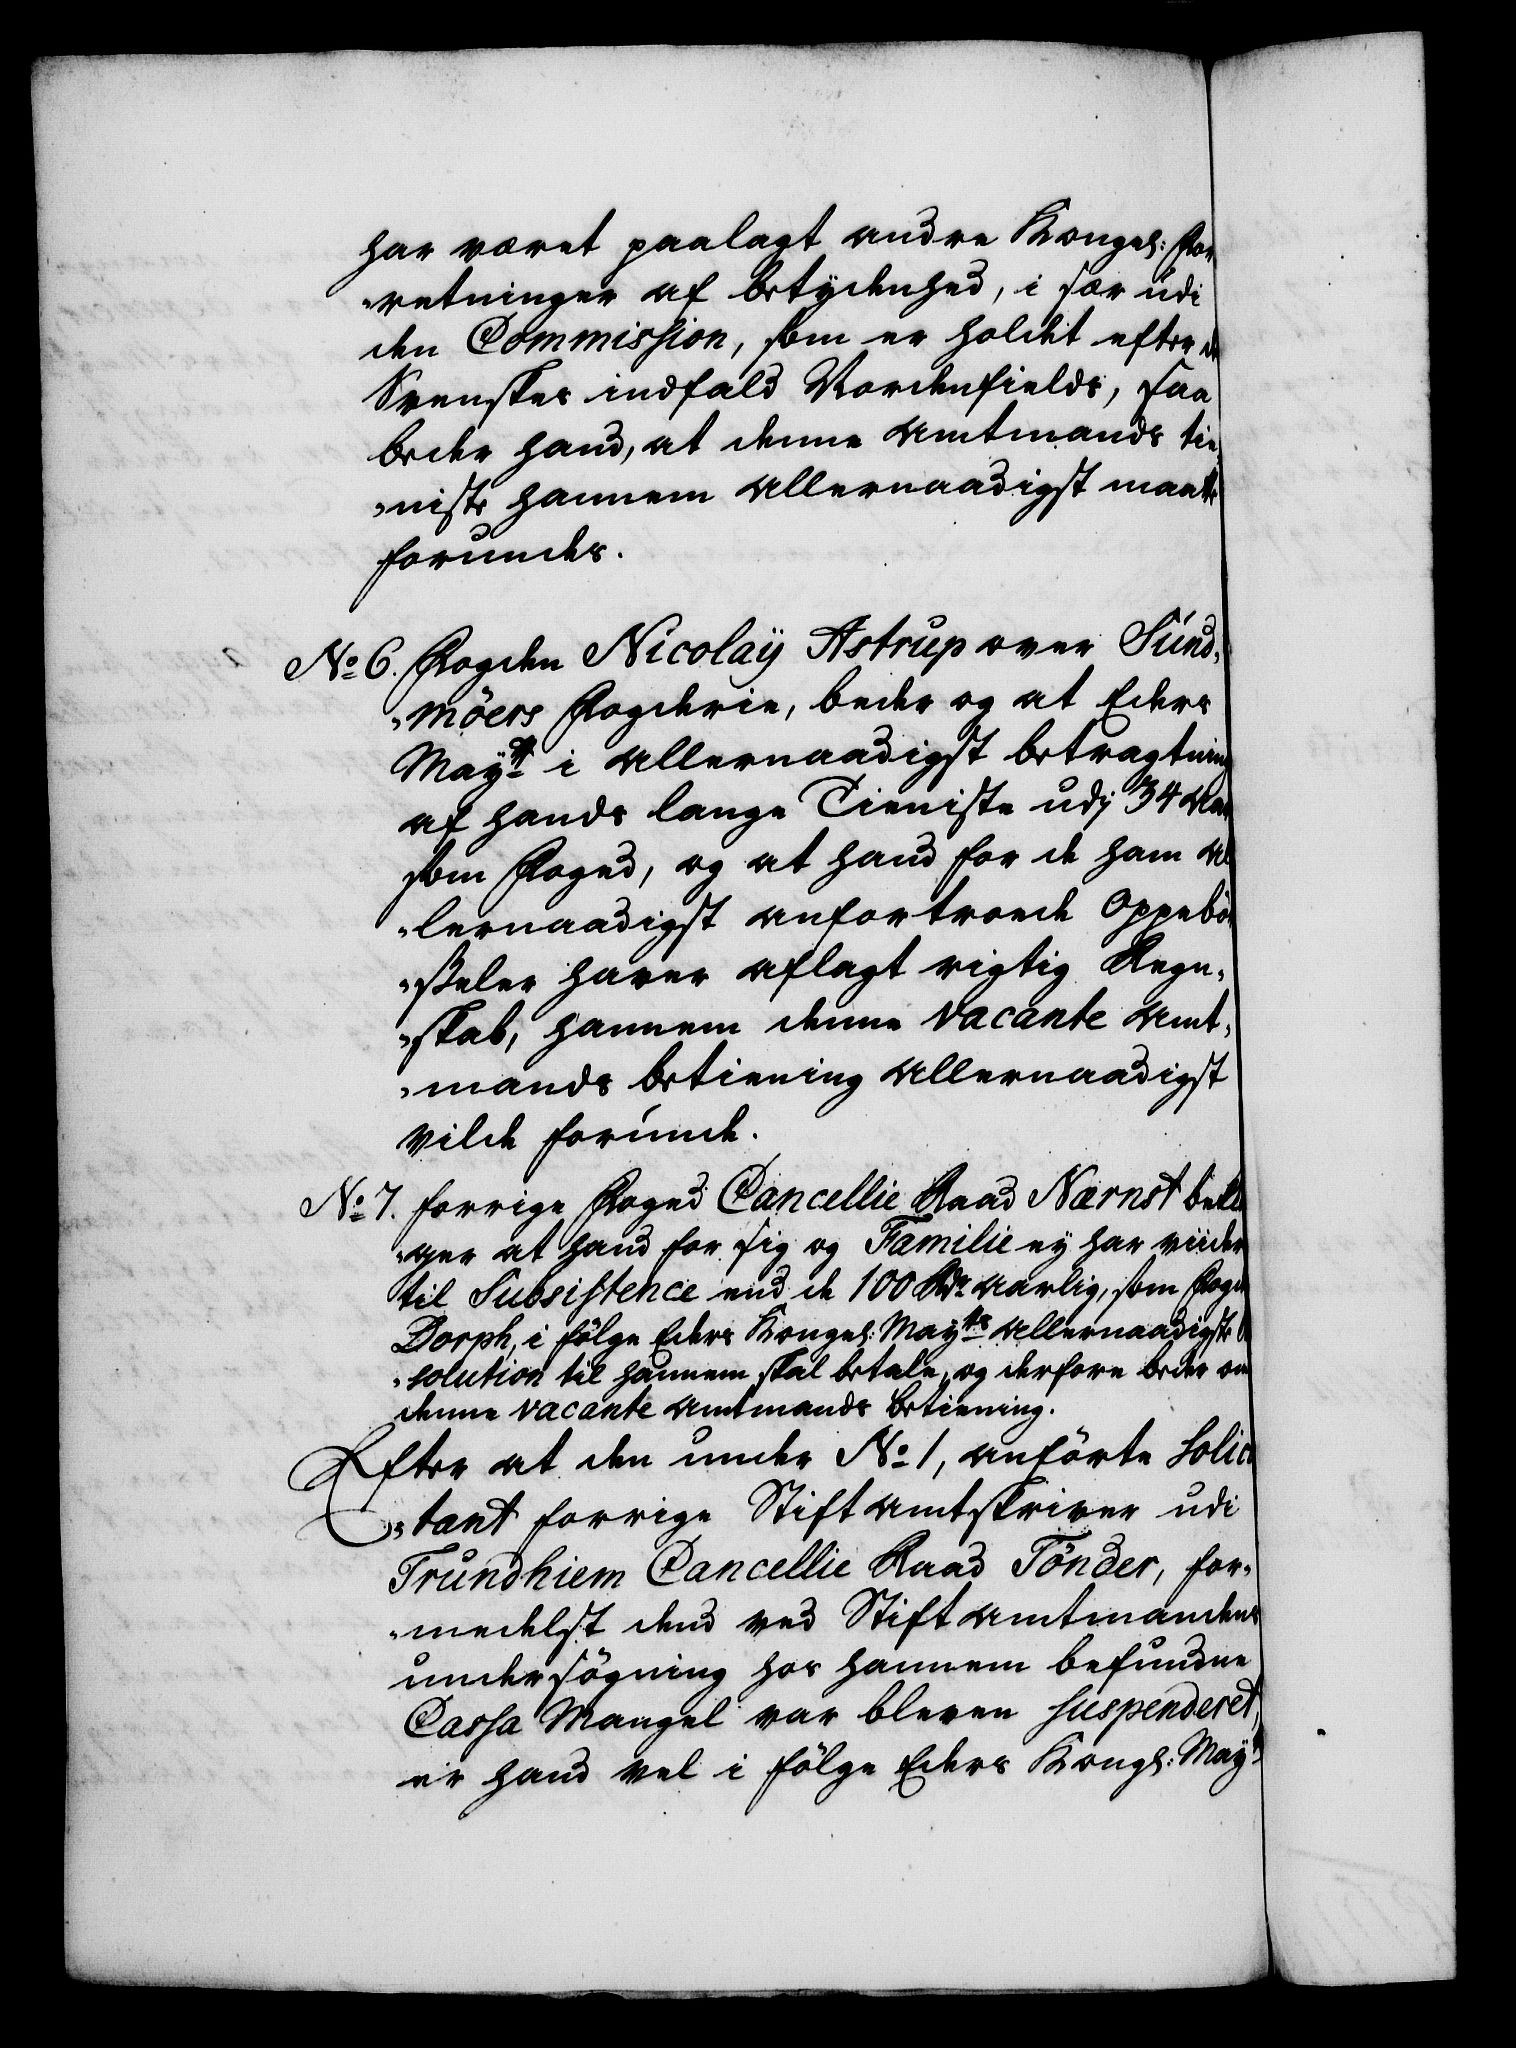 har været paalagt andre Kongel: For
-retninger af betydenhed, i sær udi
den Commission, som er holdet efter de
Svenskes indfald Nordenfields, saa
beder hand, at denne Amtmands tie-
-niste hannem Allernaadigst maatte
forundes.
No 6. Fogden Nicolaÿ Astrup over Sund-
-möers Fogderie, beder og at Eders
Maytt i Allernaadigst betragtning
af hands lange Tieniste udj 34 Aar
som Foged, og at hand for de ham Al
-lernaadigst anfortroede Oppebör
-sseler haver aflagt rigtig Regn-
-skab, hannem denne vacante Amt-
-mands betiening Allernaadigst
vilde forunde.
No 7. forrige Foged Cancellie Raad Nærnst bekla
-ger at hand for sig og Familie ey har viider
til Subsistence end de 100 Rdr aarlig, som Foged
Dorph, i fölge Eders Kongel: Maytts Allernaadigste Re
-solution til hannem skal betale, og derfore beder om
denne vacante Amtmands betiening.
Efter at den under No 1, anförte Solici
-tant forrige Stift Amtskriver udi
Trundhiem Cancellie Raad Tönder, for-
-medelst dend ved Stift Amtmandens
undersögning hos hannem befundne
Cassa Mangel var bleven suspenderet,
er hand vel i fölge Eders Kongl: Maytts